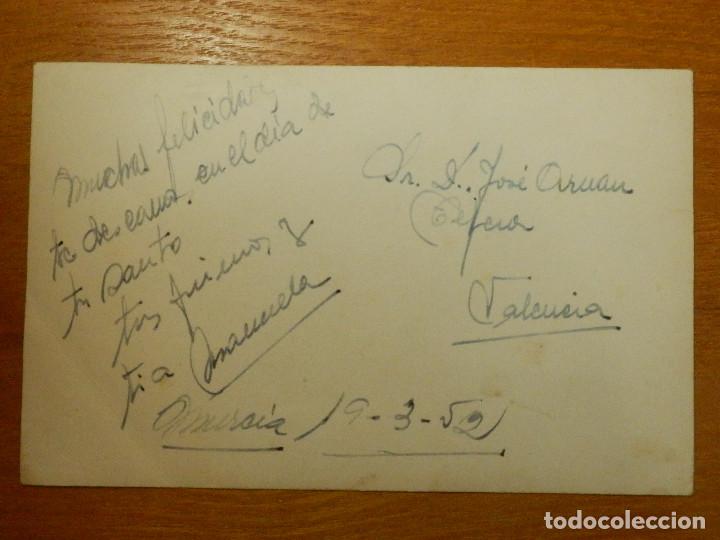 Muchas felicidades
te deseamos, en el día de
tu santo
tus primos, y
tia Manuela
Murcia 19-3-52
Sr. D. José Arnau
Valencia
todocoleccion.net